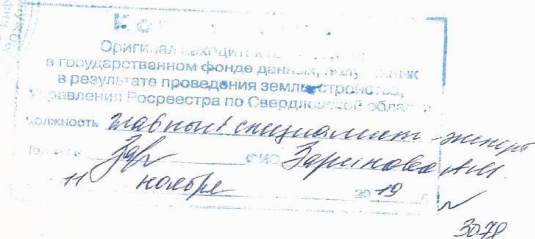 Оригинал находится
в государственном фонде данных, полученных
в результате проведения землеустройства,
Управления Росреестра по Свердловской области
должность главный специалист-эксперт
ФИО Зарипова А.М.
11 ноября 2019 г.
3078